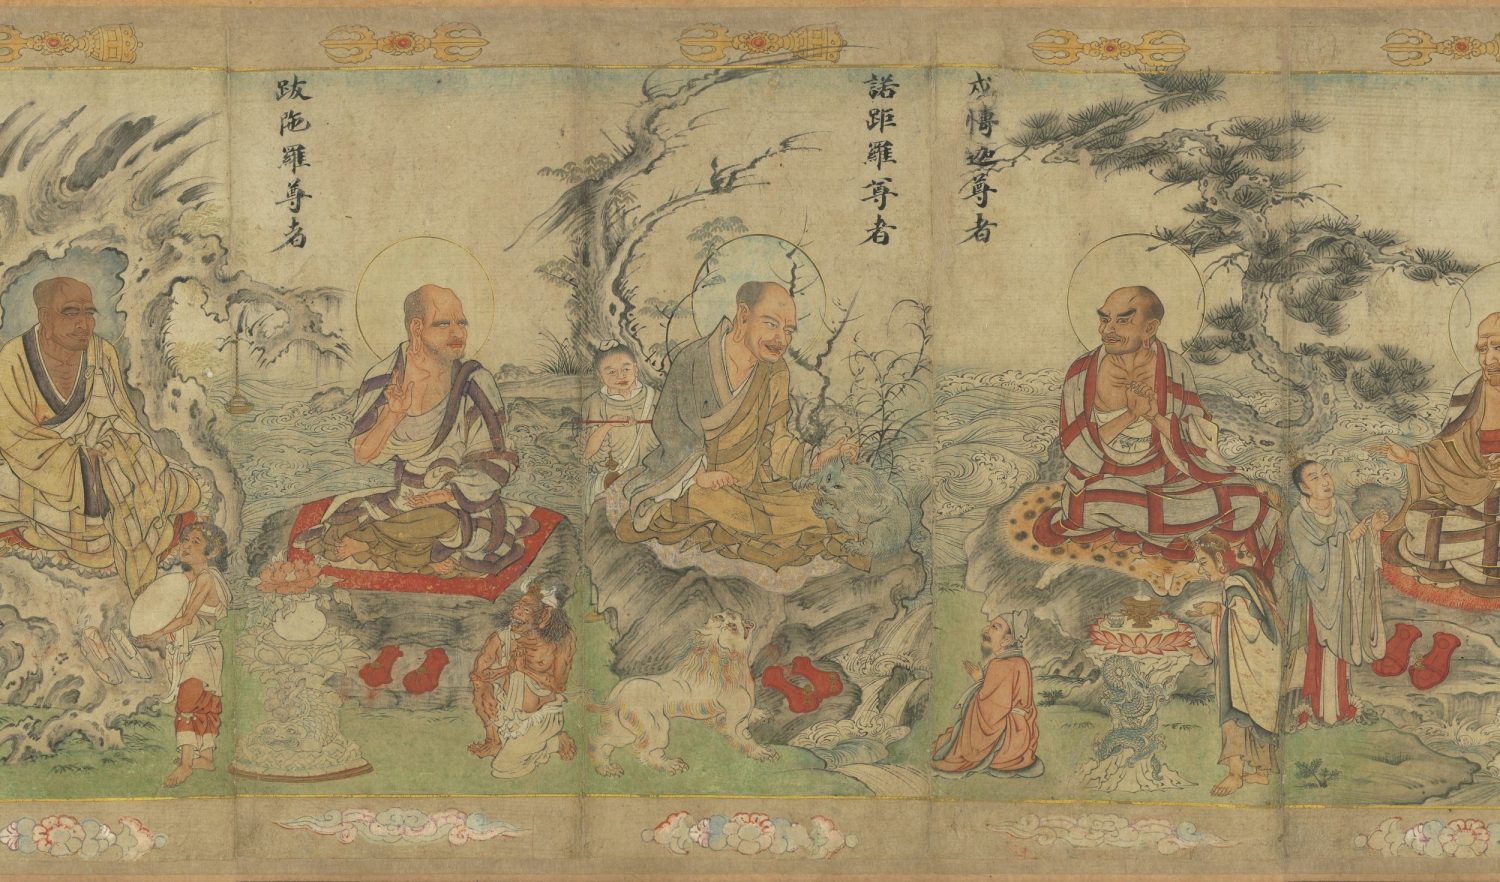 戍愽迦尊者
諾距羅尊者
跋陁羅尊者